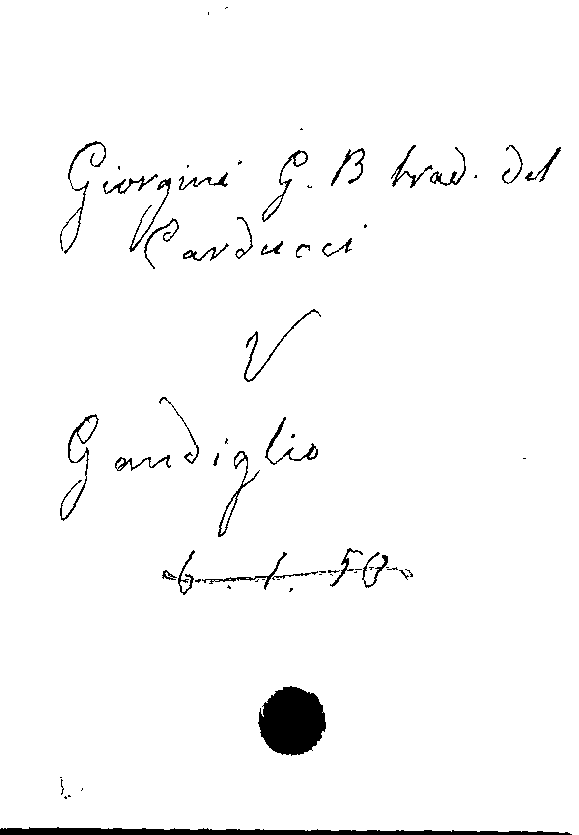 Giorgini G. B trad. del
Carducci
V
Gandiglio
6.1.50